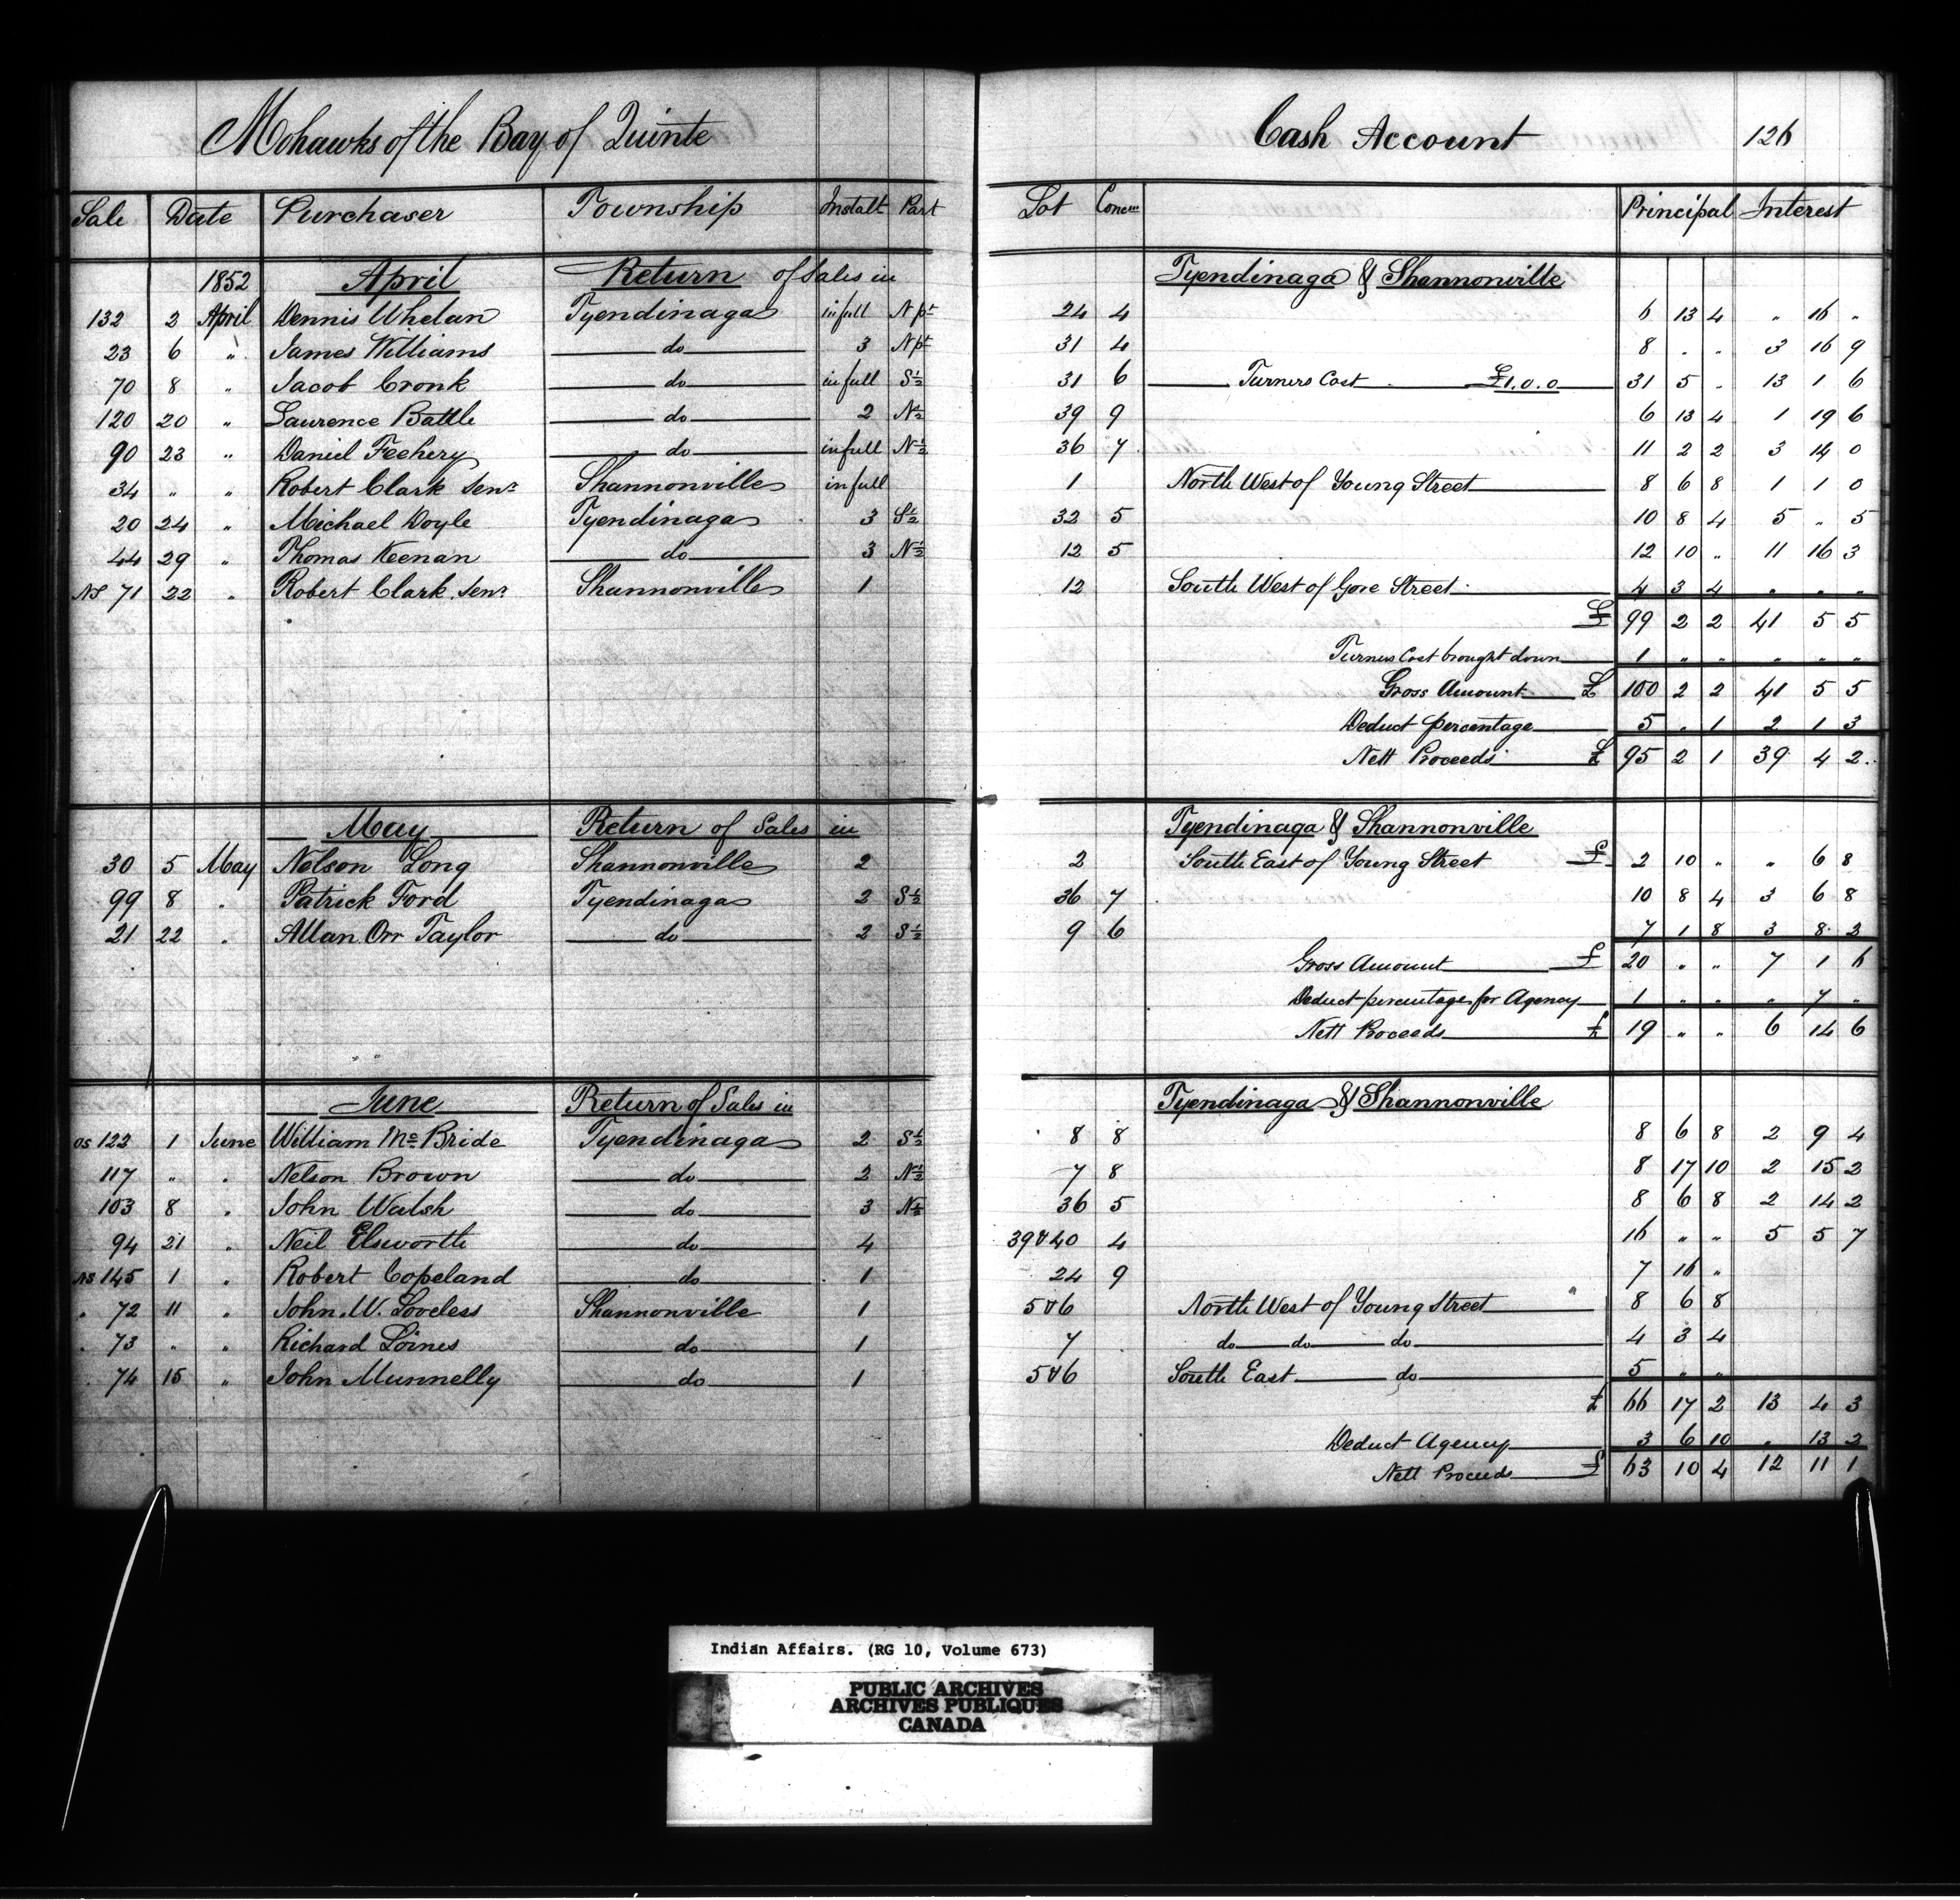 Mohawks of the Bay of Quinte Cash Account 126
Sale Date Purchaser Township Instalt Part Lot Concn Principal Interest
1852 April Return of Sales in Tyendinaga & Shannonville
132 2 April Dennis Whelan Tyendinaga in full N pt 24 4 6 13 4 " 16 "
23 6 " James Williams do 3 N pt 31 4 8 " " 3 16 9
70 8 " Jacob Cronk do in full S½ 31 6 Turners Cost £1.0.0 31 5 " 13 1 6
120 20 " Laurence Battle do 2 N½ 39 9 6 13 4 1 19 6
90 23 " Daniel Feehery do in full N½ 36 7 11 2 2 3 14 0
34 " " Robert Clark Senr Shannonville in full 1 North West of Young Street 8 6 8 1 1 0
20 24 " Michael Doyle Tyendinaga 3 S½ 32 5 10 8 4 5 " 5
44 29 " Thomas Keenan do 3 N½ 12 5 12 10 " 11 16 3
NS 71 22 " Robert Clark Senr Shannonville 1 12 South West of Gore Street 4 3 4 " " "
£ 99 2 2 41 5 5
Turners Cost brought down 1 " " " " "
Gross Amount £ 100 2 2 41 5 5
Deduct percentage 5 " 1 2 1 3
Nett Proceeds £ 95 2 1 39 4 2
May Return of Sales in Tyendinaga & Shannonville
30 5 May Nelson Long Shannonville 2 2 South East of Young Street £ 2 10 " " 6 8
99 8 " Patrick Ford Tyendinaga 2 S½ 36 7 10 8 4 3 6 8
21 22 " Allan Orr Taylor do 2 S½ 9 6 7 1 8 3 8 2
Gross Amount £ 20 " " 7 1 6
Deduct percentage for Agency 1 " " " 7 "
Nett Proceeds £ 19 " " 6 14 6
June Return of Sales in Tyendinaga & Shannonville
OS 122 1 June William Mc Bride Tyendinaga 2 S½ 8 8 8 6 8 2 9 4
117 " " Nelson Brown do 2 N½ 7 8 8 17 10 2 15 2
103 8 " John Walsh do 3 N½ 36 5 8 6 8 2 14 2
94 21 " Neil Elsworth do 4 39 & 40 4 16 " " 5 5 7
NS 145 1 " Robert Copeland do 1 24 9 7 16 "
" 72 11 " John W. Loveless Shannonville 1 5 & 6 North West of Young Street 8 6 8
" 73 " " Richard Loines do 1 7 do do do 4 3 4
" 74 15 " John Munnelly do 1 5 & 6 South East do 5 " "
£ 66 17 2 13 4 3
Deduct Agency 3 6 10 " 13 2
Nett Proceeds £ 63 10 4 12 11 1
Indian Affairs. (RG 10, Volume 673)
PUBLIC ARCHIVES
ARCHIVES PUBLIQUES
CANADA